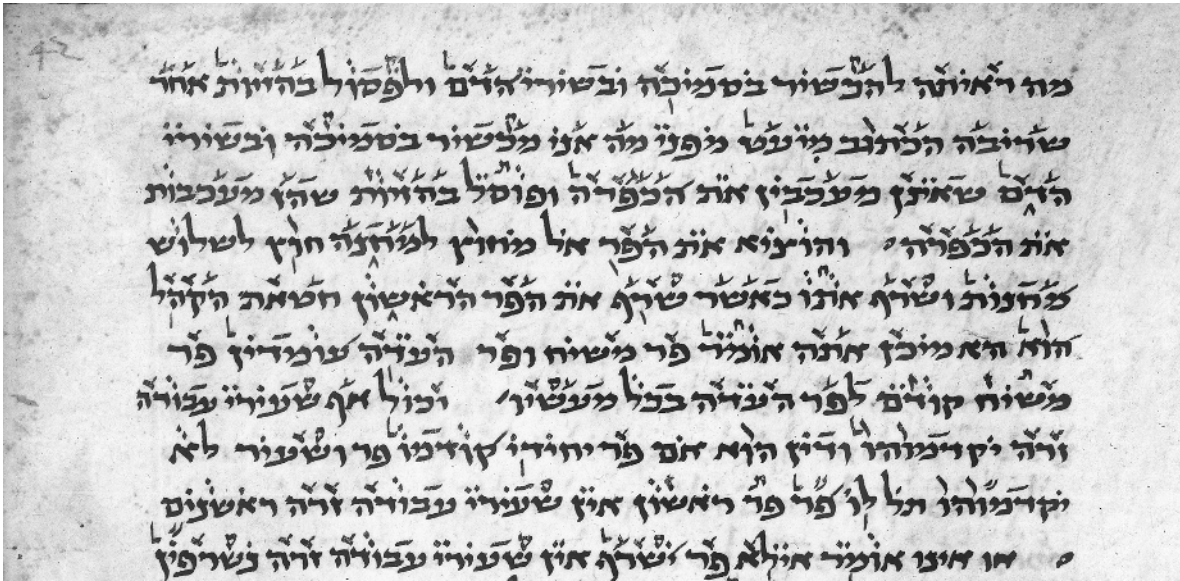 מה ראיתה להכשיר בסמיכה ובשירי הדם ולפסול בהזיות אחר
שריבה הכתוב מיעט מפני מה אני מכשיר בסמיכה ובשירי
הדם שאינן מעכבין את הכפרה ופוסל בהזיות שהן מעכבות
את הכפרה והוציא את הפר אל מחוץ למחנה חוץ לשלוש
מחנות ושרף אתו כאשר שרף את הפר הראשון חטאת הקהל
הוא הא מיכן אתה אומר פר משיח ופר העדה עומדין פר
משיח קודם לפר העדה בכל מעשיו יכול אף שעירי עבודה
זרה יקדמוהו ודין הוא אם פר יחידי קודמו פר ושעיר לא
יקדמוהו תל לו פר פר ראשון אין שעירי עבודה זרה ראשנים
או אינו אומר אילא פר ישרף אין שעירי עבודה זרה נשרפין